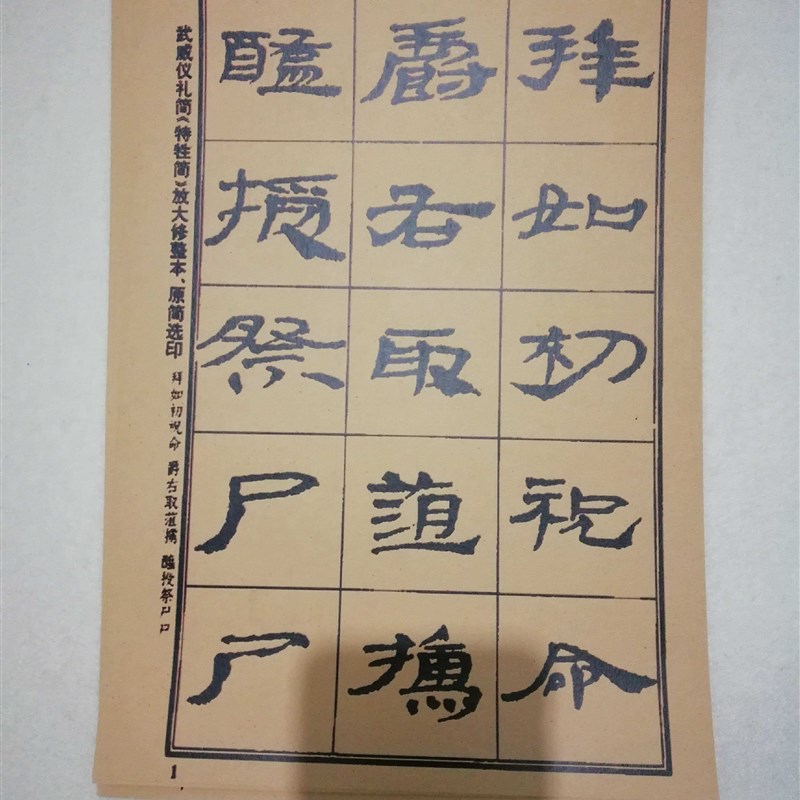 拜如初祝命
爵右取菹擩
醢授祭尸尸
武威仪礼简《特牲简》放大修整本、原简选印 拜如初祝命 爵右取菹擩 醢授祭尸
1